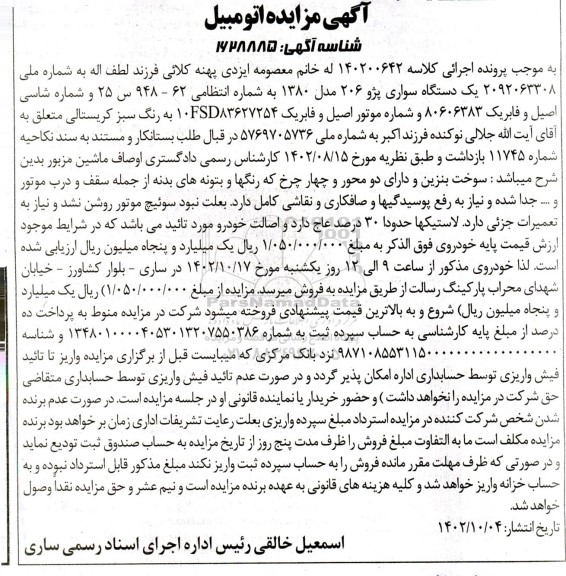 آگهی مزایده اتومبیل
شناسه آگهی: ۱۶۲۸۸۸۵
به موجب پرونده اجرائی کلاسه ۱۴۰۲۰۰۶۴۲ له خانم معصومه ایزدی پهنه کلائی فرزند لطف اله به شماره ملی
۲۰۹۲۰۶۳۳۰۸ یک دستگاه سواری پژو ۲۰۶ مدل ۱۳۸۰ به شماره انتظامی ۶۲ - ۹۴۸ س ۲۵ و شماره شاسی
اصیل و فابریک ۸۰۶۰۶۳۸۳ و شماره موتور اصیل و فابریک ۱۰FSD۸۳۶۲۷۲۵۴ به رنگ سبز کریستالی متعلق به
آقای آیت الله جلالی نوکنده فرزند اکبر به شماره ملی ۵۷۶۹۷۰۵۷۳۶ در قبال طلب بستانکار و مستند به سند نکاحیه
شماره ۱۱۷۴۵ بازداشت و طبق نظریه مورخ ۱۴۰۲/۰۸/۱۵ کارشناس رسمی دادگستری اوصاف ماشین مزبور بدین
شرح میباشد : سوخت بنزین و دارای دو محور و چهار چرخ که رنگها و بتونه های بدنه از جمله سقف و درب موتور
و .... جدا شده و نیاز به رفع پوسیدگیها و صافکاری و نقاشی کامل دارد. بعلت نبود سوئیچ موتور روشن نشد و نیاز به
تعمیرات جزئی دارد. لاستیکها حدودا ۳۰ درصد عاج دارد و اصالت خودرو مورد تائید می باشد که در شرایط موجود
ارزش قیمت پایه خودروی فوق الذکر به مبلغ ۱/۰۵۰/۰۰۰/۰۰۰ ریال یک میلیارد و پنجاه میلیون ریال ارزیابی شده
است. لذا خودروی مذکور از ساعت ۹ الی ۱۲ روز یکشنبه مورخ ۱۴۰۲/۱۰/۱۷ در ساری - بلوار کشاورز - خیابان
شهدای محراب پارکینگ رسالت از طریق مزایده به فروش میرسد مزایده از مبلغ ۱/۰۵۰/۰۰۰/۰۰۰) ریال یک میلیارد
و پنجاه میلیون ریال) شروع و به بالاترین قیمت پیشنهادی فروخته میشود شرکت در مزایده منوط به پرداخت ده
درصد از مبلغ پایه کارشناسی به حساب سپرده ثبت به شماره و شناسه
نزد بانک مرکزی که میبایست قبل از برگزاری مزایده واریز تا تائید
فیش واریزی توسط حسابداری اداره امکان پذیر گردد و در صورت عدم تائید فیش واریزی توسط حسابداری متقاضی
حق شرکت در مزایده را نخواهد داشت ) و حضور خریدار یا نماینده قانونی او در جلسه مزایده است. در صورت عدم برنده
شدن شخص شرکت کننده در مزایده استرداد مبلغ سپرده واریزی بعلت رعایت تشریفات اداری زمان بر خواهد بود برنده
مزایده مکلف است ما به التفاوت مبلغ فروش را ظرف مدت پنج روز از تاریخ مزایده به حساب صندوق ثبت تودیع نماید
و در صورتی که ظرف مهلت مقرر مانده فروش را به حساب سپرده ثبت واریز نکند مبلغ مذکور قابل استرداد نبوده و به
حساب خزانه واریز خواهد شد و کلیه هزینه های قانونی به عهده برنده مزایده است و نیم عشر و حق مزایده نقدا وصول
خواهد شد.
تاریخ انتشار: ۱۴۰۲/۱۰/۰۴
اسمعیل خالقی رئیس اداره اجرای اسناد رسمی ساری